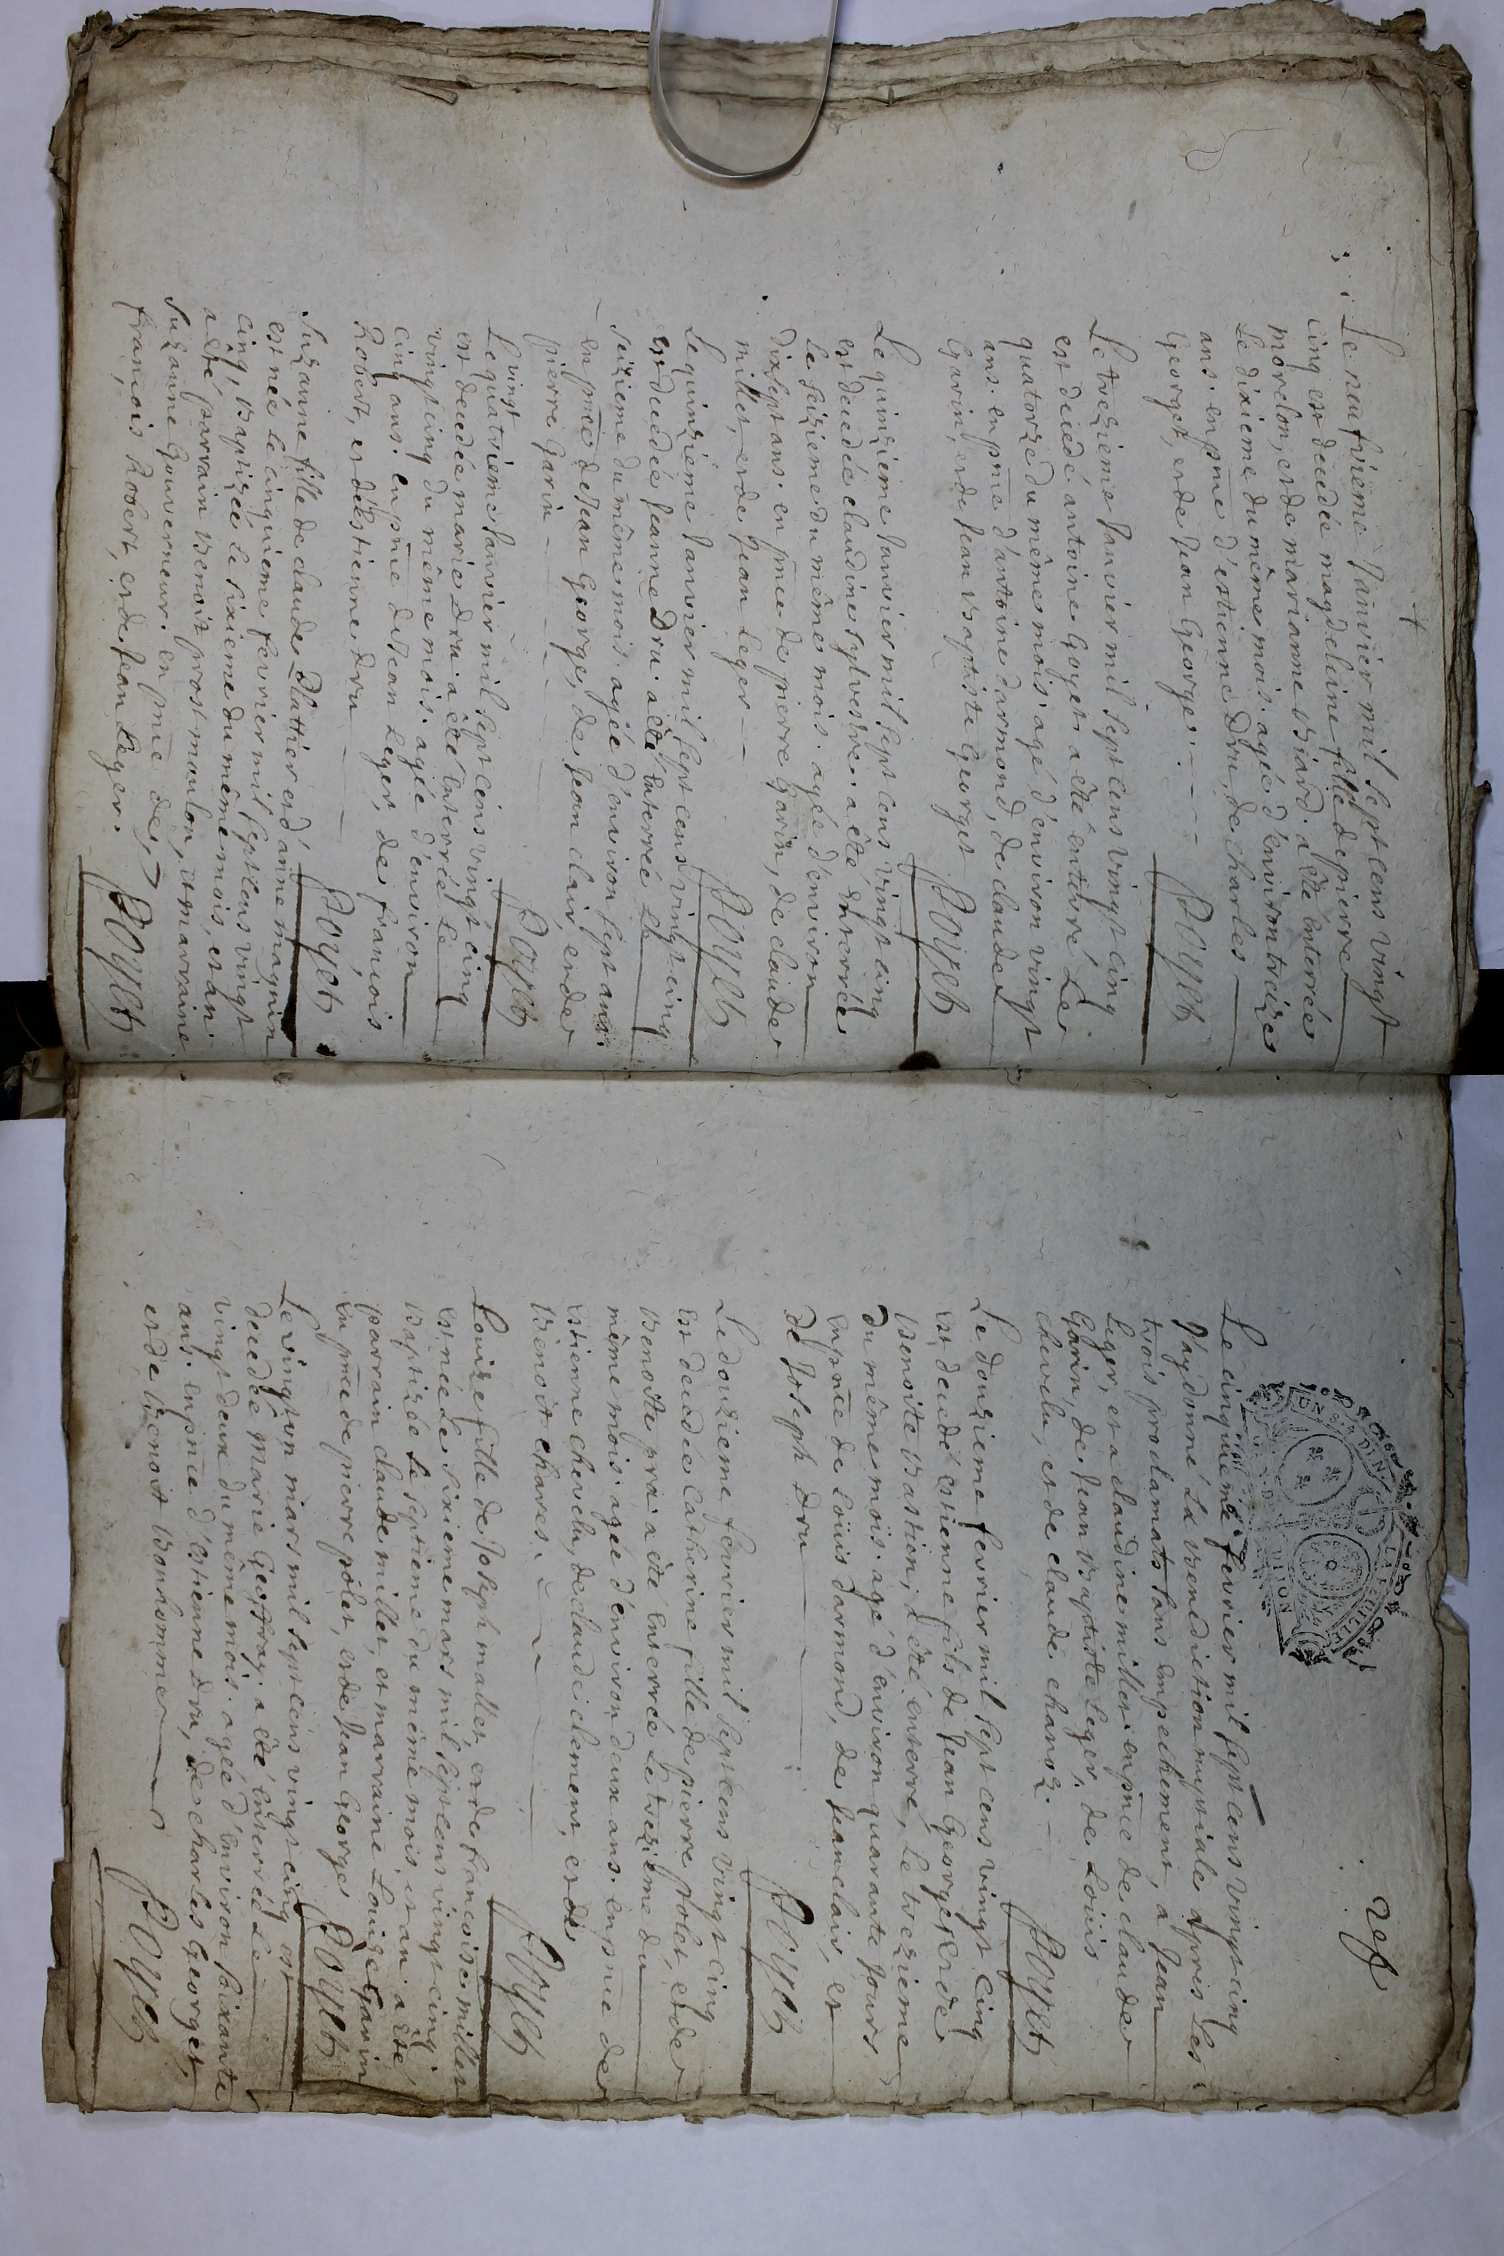 Le neufvieme Janvier mil sept cens vingt
cinq est decedée magdeleine fille de pierre
morelon, et de marianne biard. a été enterrée
Le dixieme du même mois. agée d'environ treize
ans. en pnce d'estienne Dru, de charles
Georget, et de Jean George.
Poyet
Le trezieme Janvier mil sept cens vingt cinq
est decedé antoine Goyet a été enterré Le
quatorze du même mois agé d'environ vingt
ans. en pnce d'antoine darmond, de claude
Garin, et de Jean baptiste Georget
Poyet
Le quinzieme Janvier mil sept cens vingt cinq
est decedée claudine sylvestre. a été enterrée
Le seizieme du même mois. agée d'environ
dix sept ans. en pnce de pierre Garin, de claude
millet, et de Jean Leger
Poyet
Le quinzieme Janvier mil sept cens vingt cinq
est decedée Jeanne Dru. a été enterrée Le
seizieme du même mois. agée d'environ sept ans.
en pnce de Jean George, de Jean clair, et de
pierre Garin
Poyet
Le vingt
quatrieme Janvier mil sept cens vingt cinq
est decedée marie Dru. a été enterrée Le
vingt cinq du même mois. agée d'environ
cinq ans. en pnce de Jean Leger, de francois
Robert, et d'estienne Dru
Poyet
Suzanne fille de claude Plattier et d'anne magnin
est née Le cinquieme fevrier mil sept cens vingt
cinq, baptizée Le sixieme du même mois, et an.
a été parrain benoit prost moulon, et marraine
Suzanne Gouverneur. en pnce de
francois Robert, et de Jean Leger.
Poyet
Le cinquieme fevrier mil sept cens vingt cinq
J'ay donné La benediction nuptiale apres Les
trois proclamats sans empechement, a Jean
Leger, et a claudine millet. en pnce de claude
Garin, de Jean baptiste Leger, de Loüis
chervelu, et de claude chanoz.
Poyet
Le douzieme fevrier mil sept cens vingt cinq
est decedé estienne fils de Jean George, et de
benoite bastion, a été enterré, Le trezieme
du même mois. agé d'environ quarante Jours
en pnce de Loüis darmond, de Jean clair, et
de Joseph Dru
Poyet
Le douzieme fevrier mil sept cens vingt cinq
est decedée catherine fille de pierre polet, et de
benoite pra. a été enterrée Le trezieme du
même mois agée d'environ deux ans. en pnce de
estienne chervelu, de claude clement, et de
Benoit chares.
Poyet
Louize fille de Joseph mallet, et de francoise millet
est née Le sixieme mars mil sept cens vingt cinq.
baptizée Le septieme du même mois, et an. a été
parrain claude millet, et marraine Louize Garin
en pnce de pierre polet, et de Jean George
Poyet
Le vingt un mars mil sept cens vingt cinq est
decedée Marie Geoffray. a été enterrée Le
vingt deux du même mois. agée d'environ soixante
ans. en pnce d'estienne Dru, de charles Georget,
et de benoit bonhomme
Poyet